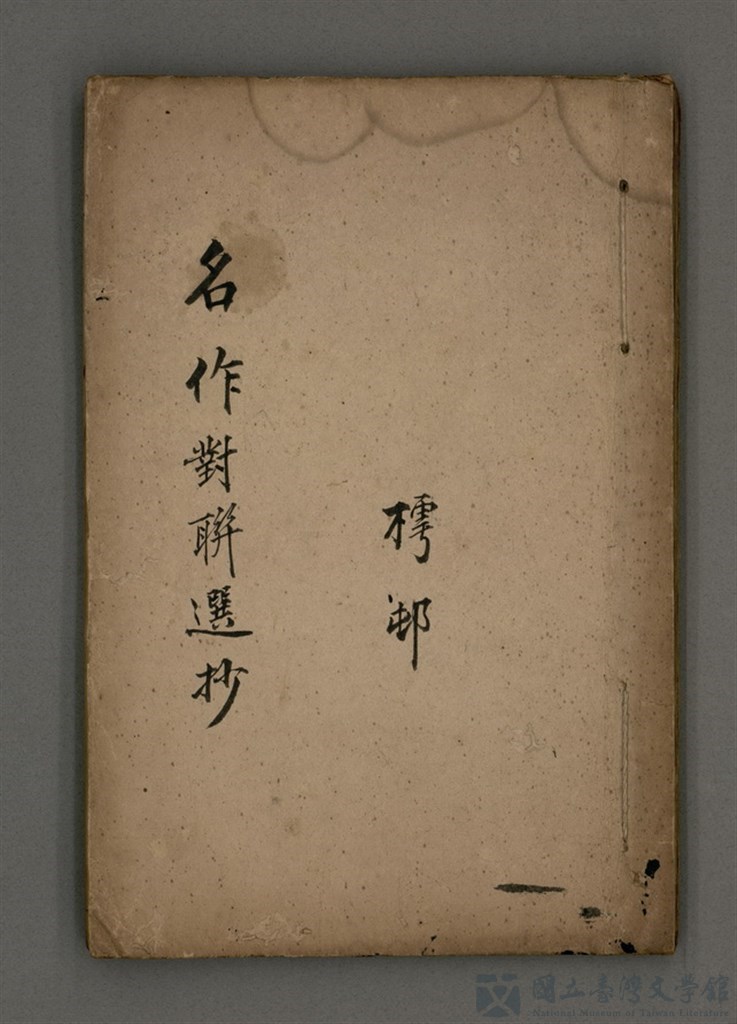 樗邨
名作對聯選抄
國立臺灣文學館
National Museum of Taiwan Literature